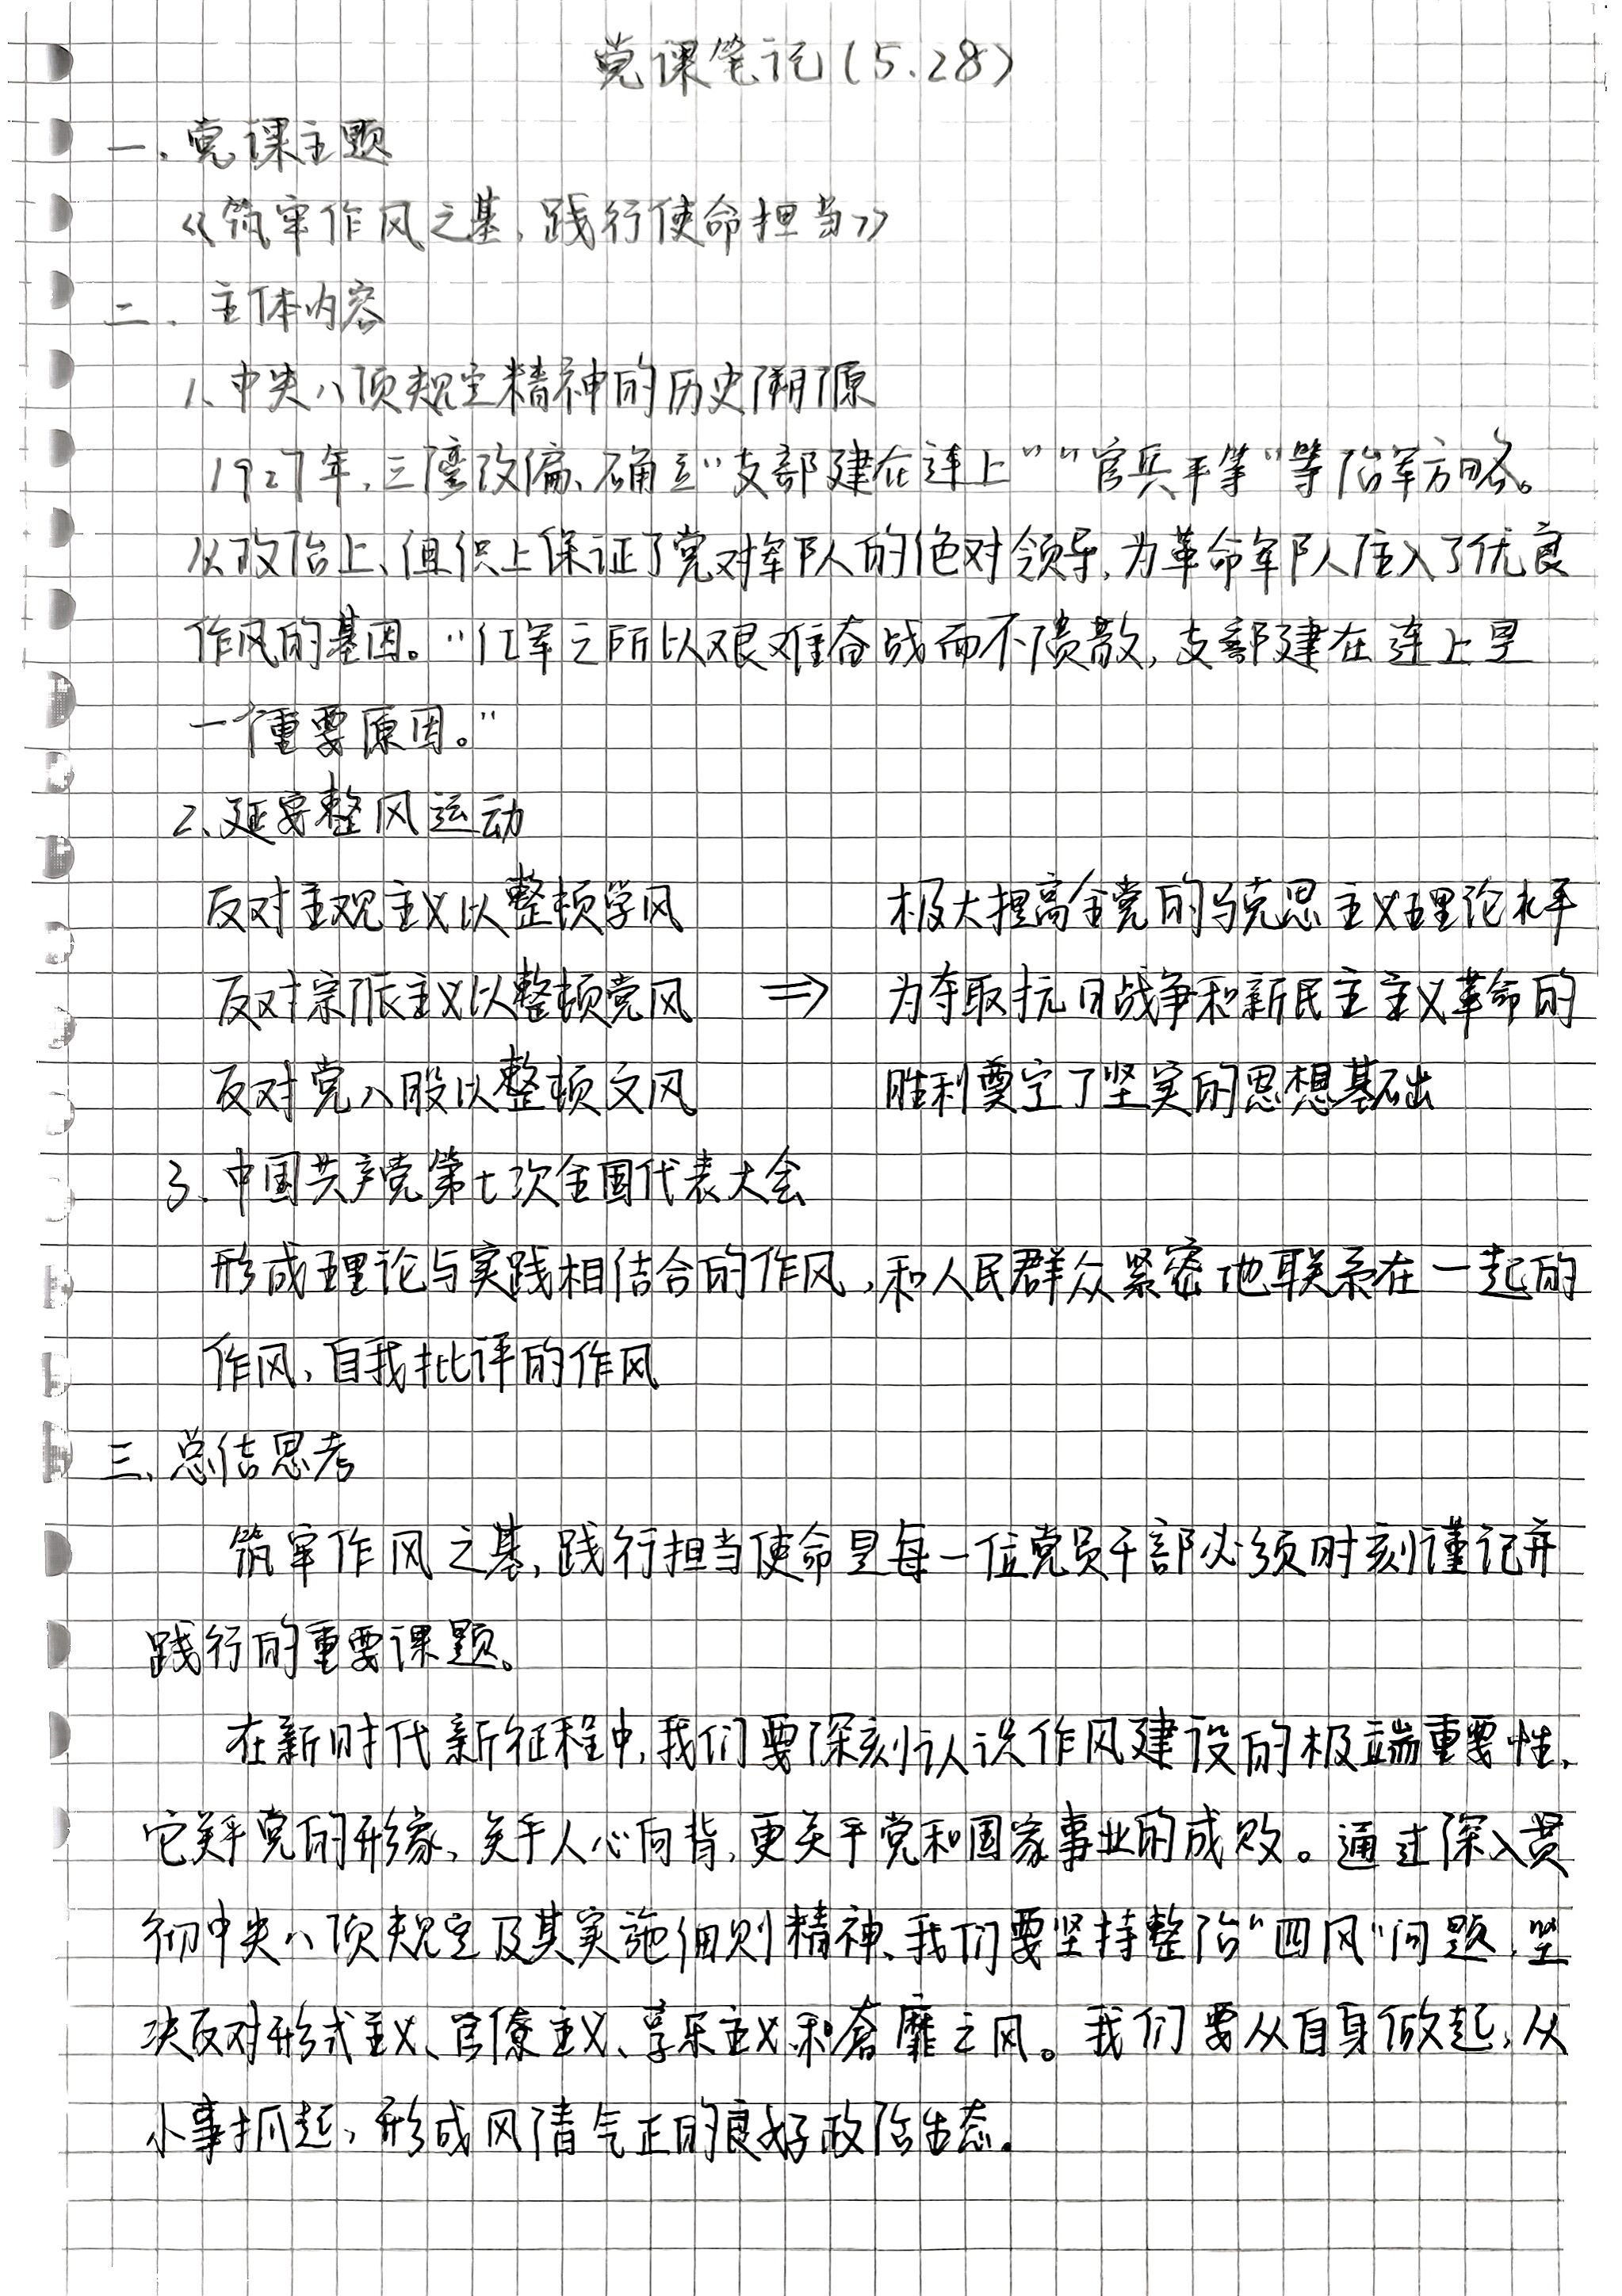 党课笔记(5.28)
一、党课主题
《筑牢作风之基,践行使命担当》
二、主体内容
1、中央八项规定精神的历史溯源
1927年,三湾改编、确立"支部建在连上""官兵平等"等治军方略。
从政治上、组织上保证了党对军队的绝对领导,为革命军队注入了优良
作风的基因。"红军之所以艰难奋战而不溃散,支部建在连上是
一个重要原因。"
2、延安整风运动
反对主观主义以整顿学风 极大提高全党的马克思主义理论水平
反对宗派主义以整顿党风 ⇒ 为夺取抗日战争和新民主主义革命的
反对党八股以整顿文风 胜利奠定了坚实的思想基础
3、中国共产党第七次全国代表大会
形成理论与实践相结合的作风,和人民群众紧密地联系在一起的
作风、自我批评的作风
三、总结思考
筑牢作风之基,践行担当使命是每一位党员干部必须时刻谨记并
践行的重要课题。
在新时代新征程中,我们要深刻认识作风建设的极端重要性,
它关乎党的形象、关乎人心向背,更关乎党和国家事业的成败。通过深入贯
彻中央八项规定及其实施细则精神、我们要坚持整治"四风"问题,坚
决反对形式主义、官僚主义、享乐主义和奢靡之风。我们要从自身做起,从
小事抓起,形成风清气正的良好政治生态。